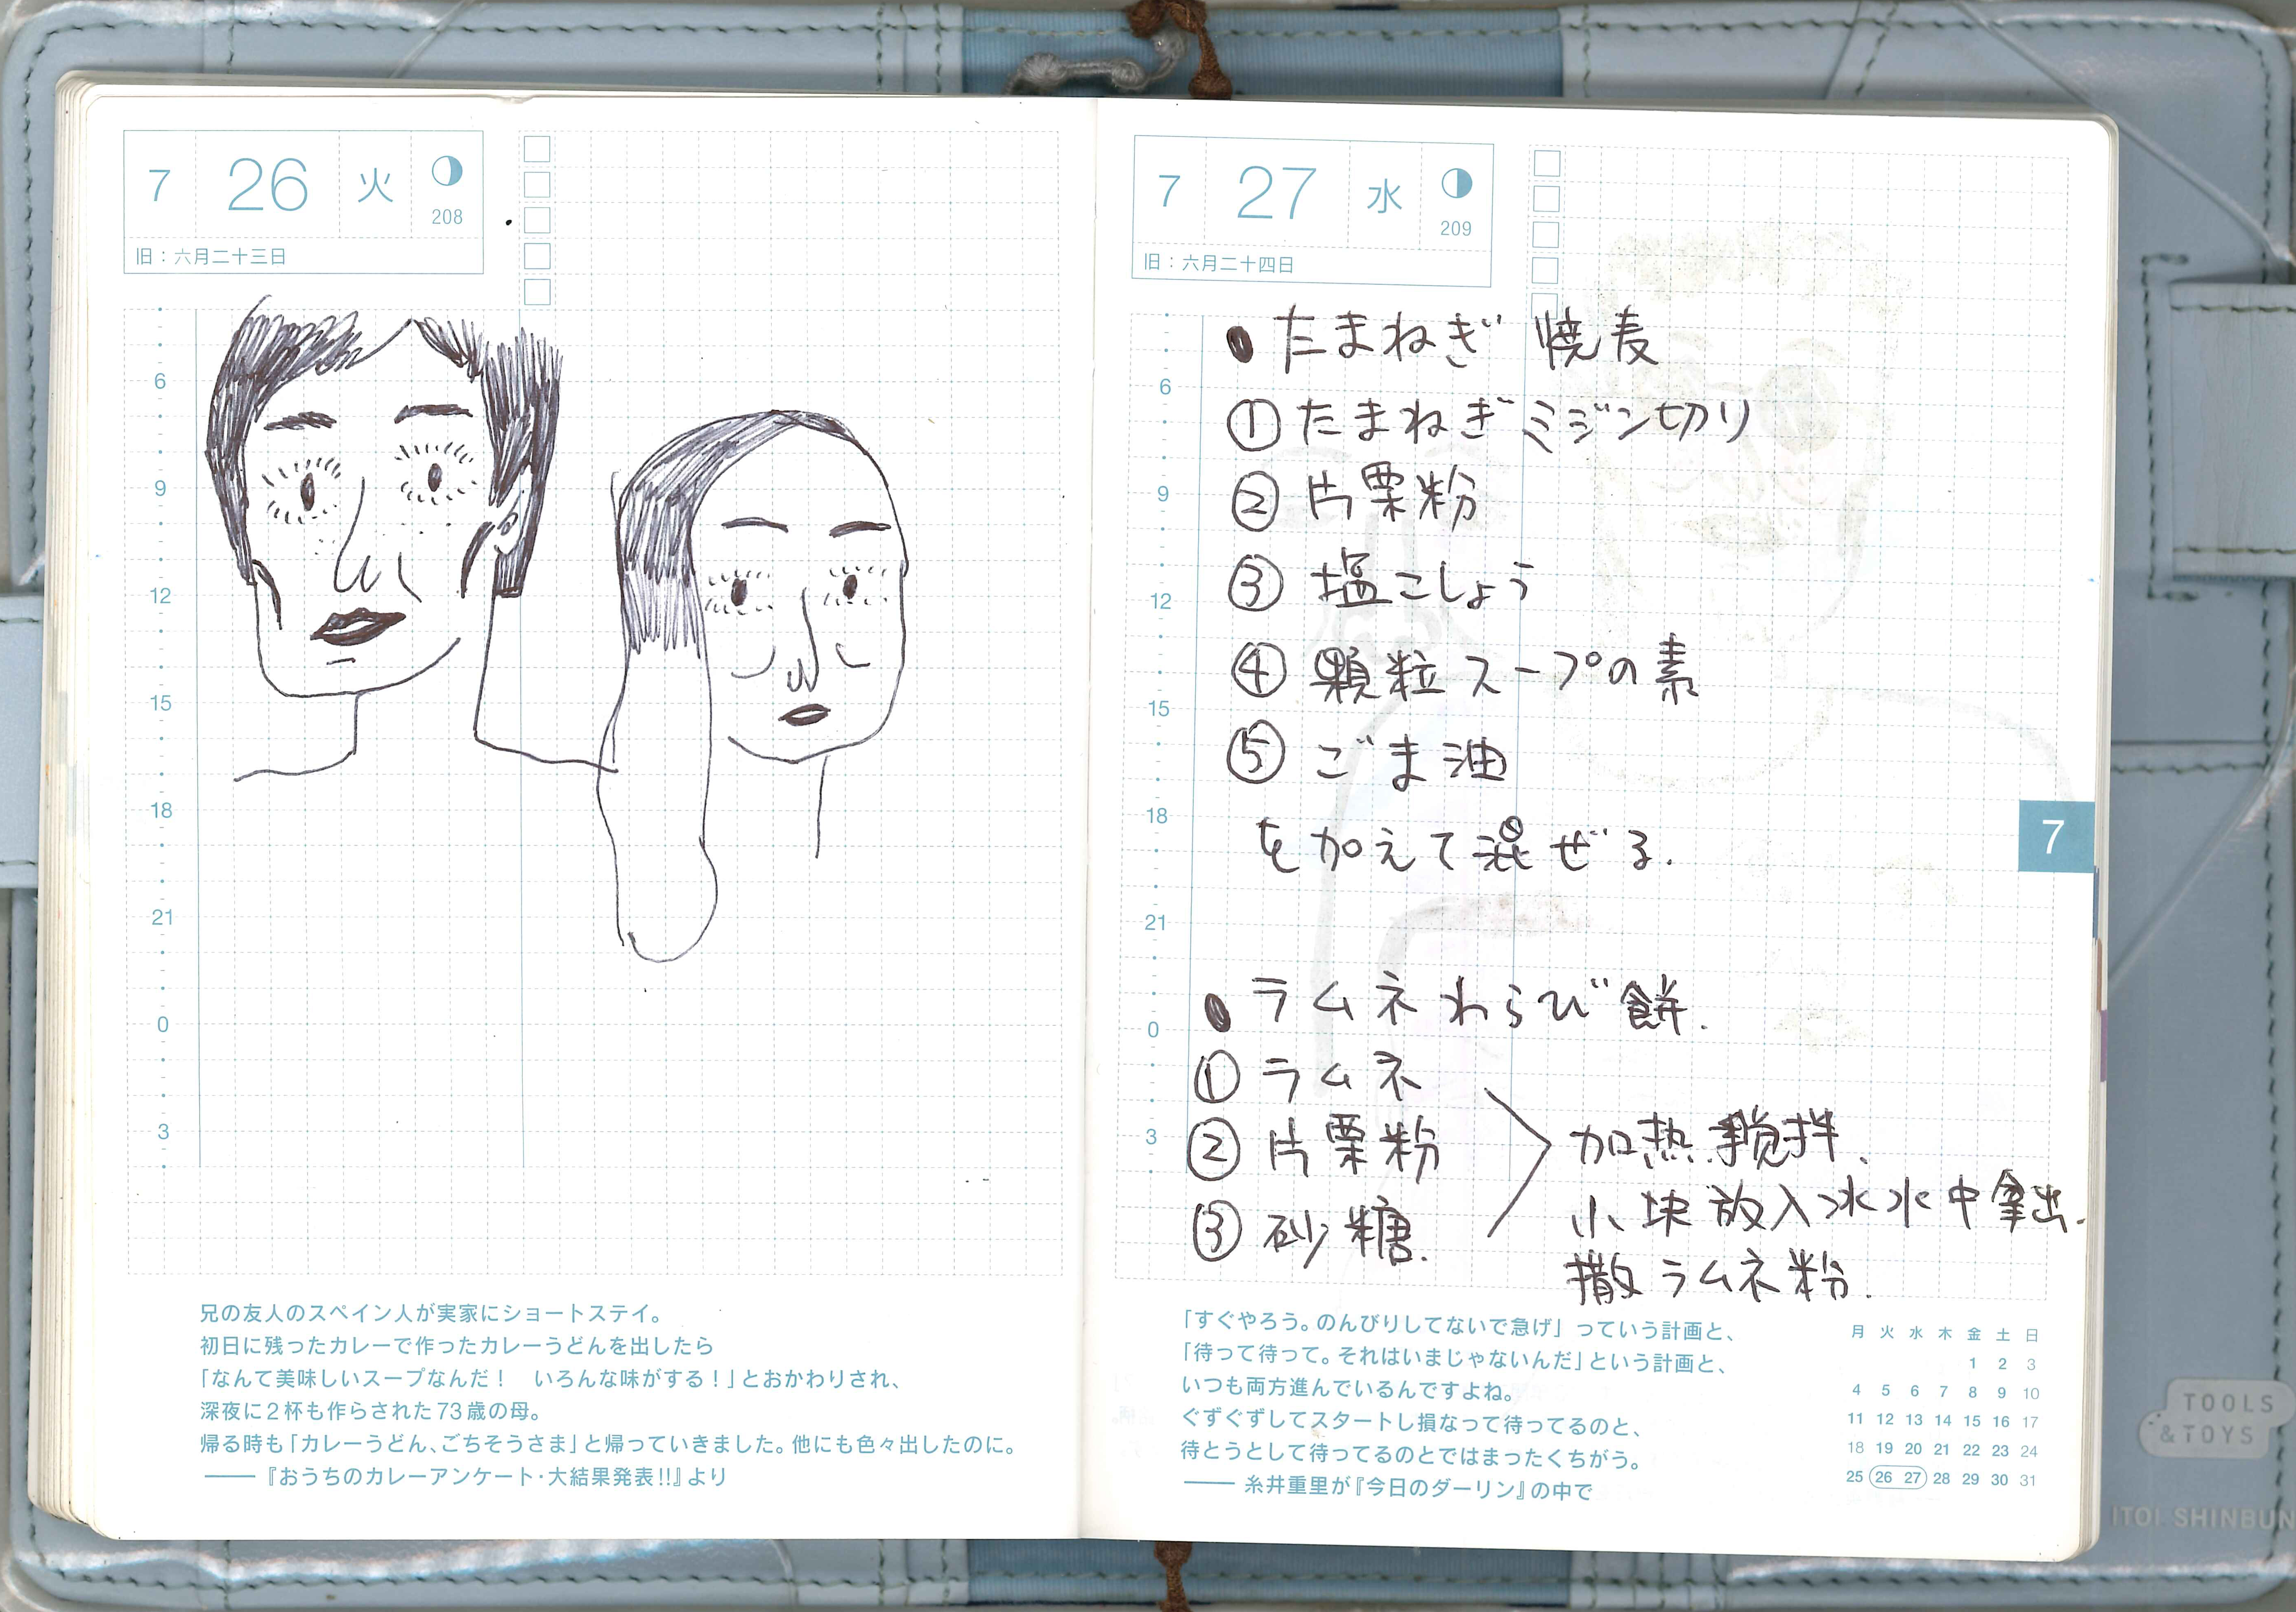 7 26 火
208
旧：六月二十三日
6
9
12
15
18
21
0
3
兄の友人のスペイン人が実家にショートステイ。
初日に残ったカレーで作ったカレーうどんを出したら
「なんて美味しいスープなんだ！　いろんな味がする！」とおかわりされ、
深夜に2杯も作らされた73歳の母。
帰る時も「カレーうどん、ごちそうさま」と帰っていきました。他にも色々出したのに。
――『おうちのカレーアンケート・大結果発表!!』より
7 27 水
209
旧：六月二十四日
6
9
12
15
18
21
0
3
● たまねぎ 焼麦
① たまねぎミジン切り
② 片栗粉
③ 塩こしょう
④ 顆粒スープの素
⑤ ごま油
を加えて混ぜる.
● ラムネわらび餅.
① ラムネ
② 片栗粉
③ 砂糖.
加热 搅拌.
小块放入冰水中拿出.
撒ラムネ粉.
7
「すぐやろう。のんびりしてないで急げ」っていう計画と、
「待って待って。それはいまじゃないんだ」という計画と、
いつも両方進んでいるんですよね。
ぐずぐずしてスタートし損なって待ってるのと、
待とうとして待ってるのとではまったくちがう。
――糸井重里が『今日のダーリン』の中で
月 火 水 木 金 土 日
1 2 3
4 5 6 7 8 9 10
11 12 13 14 15 16 17
18 19 20 21 22 23 24
25 26 27 28 29 30 31
TOOLS
&TOYS
ITOI SHINBUN